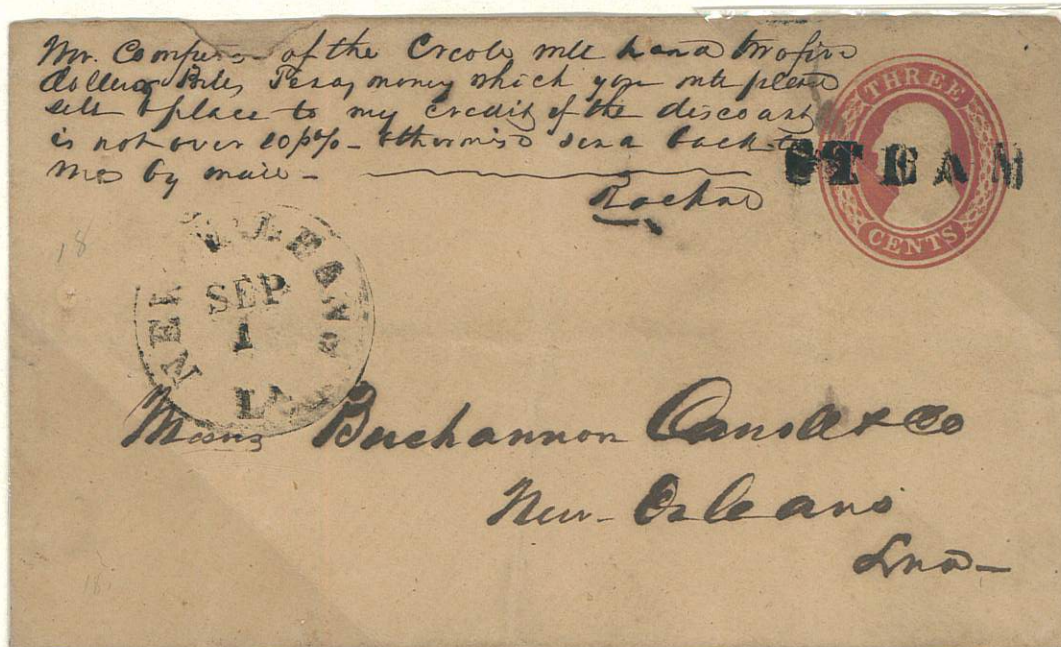 Mr. of the Creole will hand two five
dollar Bills Texas money which you will please
sell & place to my credit if the discount
is not over 10 p% - otherwise send back to
me by mail -
THREE
CENTS
STEAM
18
NEW ORLEANS
SEP
1
LA
Messrs Buchannon & Co
New-Orleans
Lna-
18